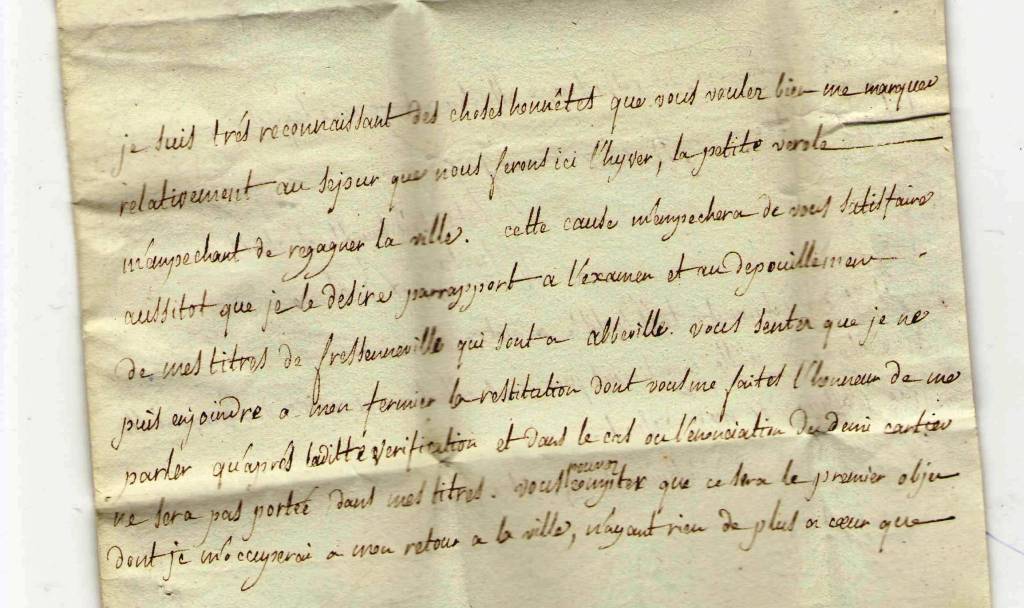 je suis trés reconnaissant des choses honnêtes que vous voulez bien me marquer
relativement au sejour que nous ferons ici l'hyver, la petite verole
m'anpechant de regagner la ville. cette cause m'enpechera de vous satisfaire
aussitot que je le desire parrapport a l'examen et au depouillement
de mes titres de fressenneville qui sont a abbeville. vous sentez que je ne
puis enjoindre a mon fermier la restitution dont vous me faites l'honneur de me
parler qu'aprés laditte verification et dans le cas ou l'enonciation du demi cartier
ne sera pas portée dans mes titres. vous pouvez compter que ce sera le premier objet
dont je m'occuperai a mon retour a la ville, n'ayant rien de plus a cœur que